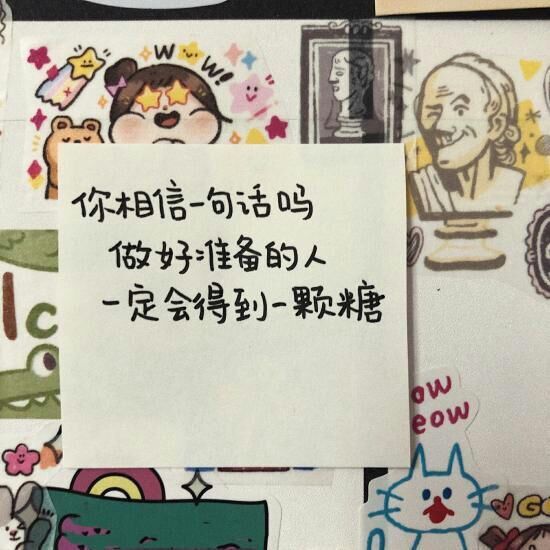 WOW!
你相信一句话吗
做好准备的人
一定会得到一颗糖
ow
eow